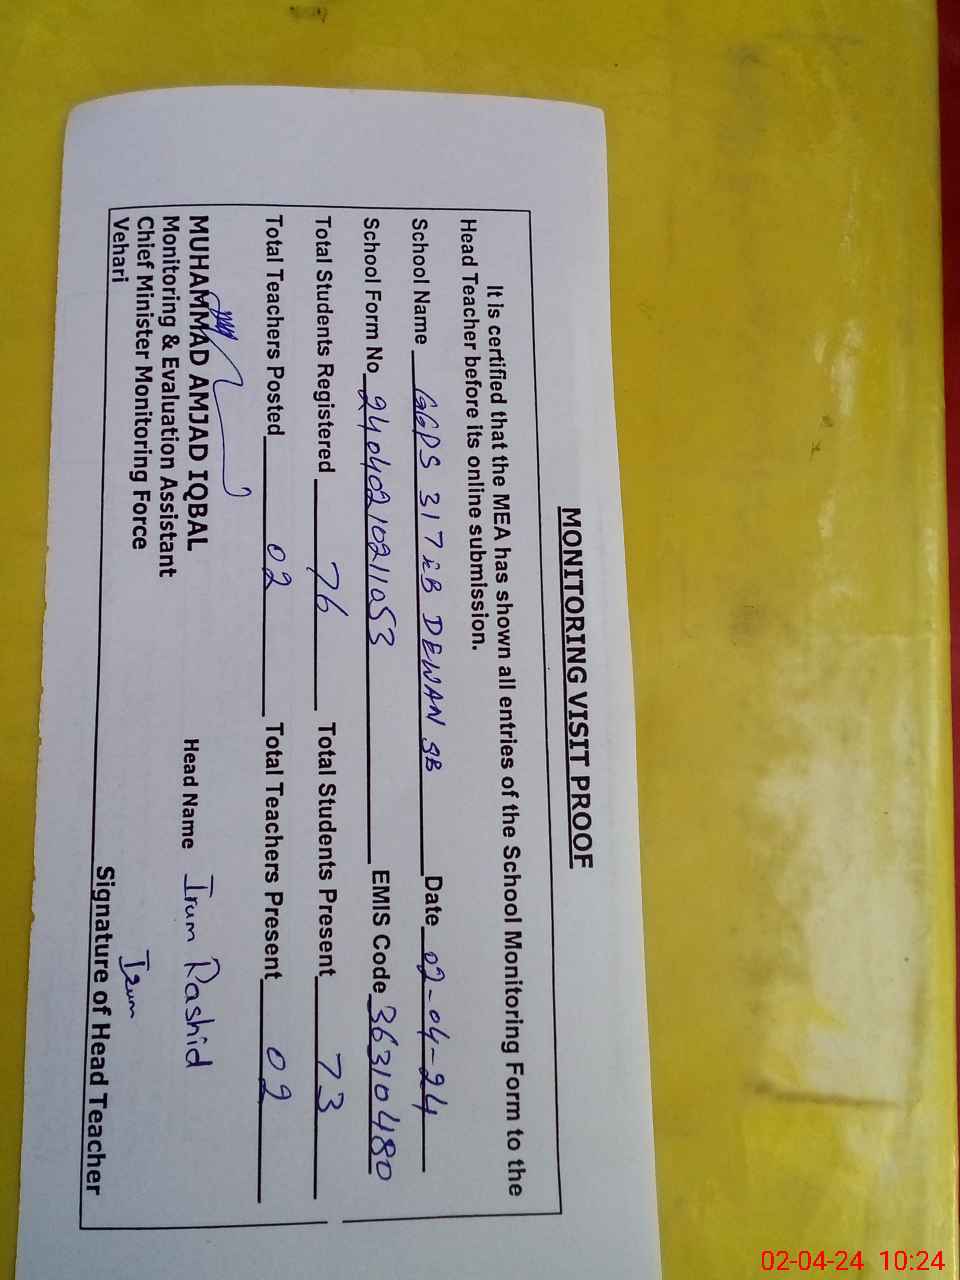 MONITORING VISIT PROOF
It is certified that the MEA has shown all entries of the School Monitoring Form to the
Head Teacher before its online submission.
School Name GGPS 317 EB DEWAN SB Date 02-04-24
School Form No 24040210211053 EMIS Code 36310480
Total Students Registered 76 Total Students Present 73
Total Teachers Posted 02 Total Teachers Present 02
MUHAMMAD AMJAD IQBAL Head Name Irum Rashid
Monitoring & Evaluation Assistant
Chief Minister Monitoring Force Irum
Vehari Signature of Head Teacher
02-04-24 10:24